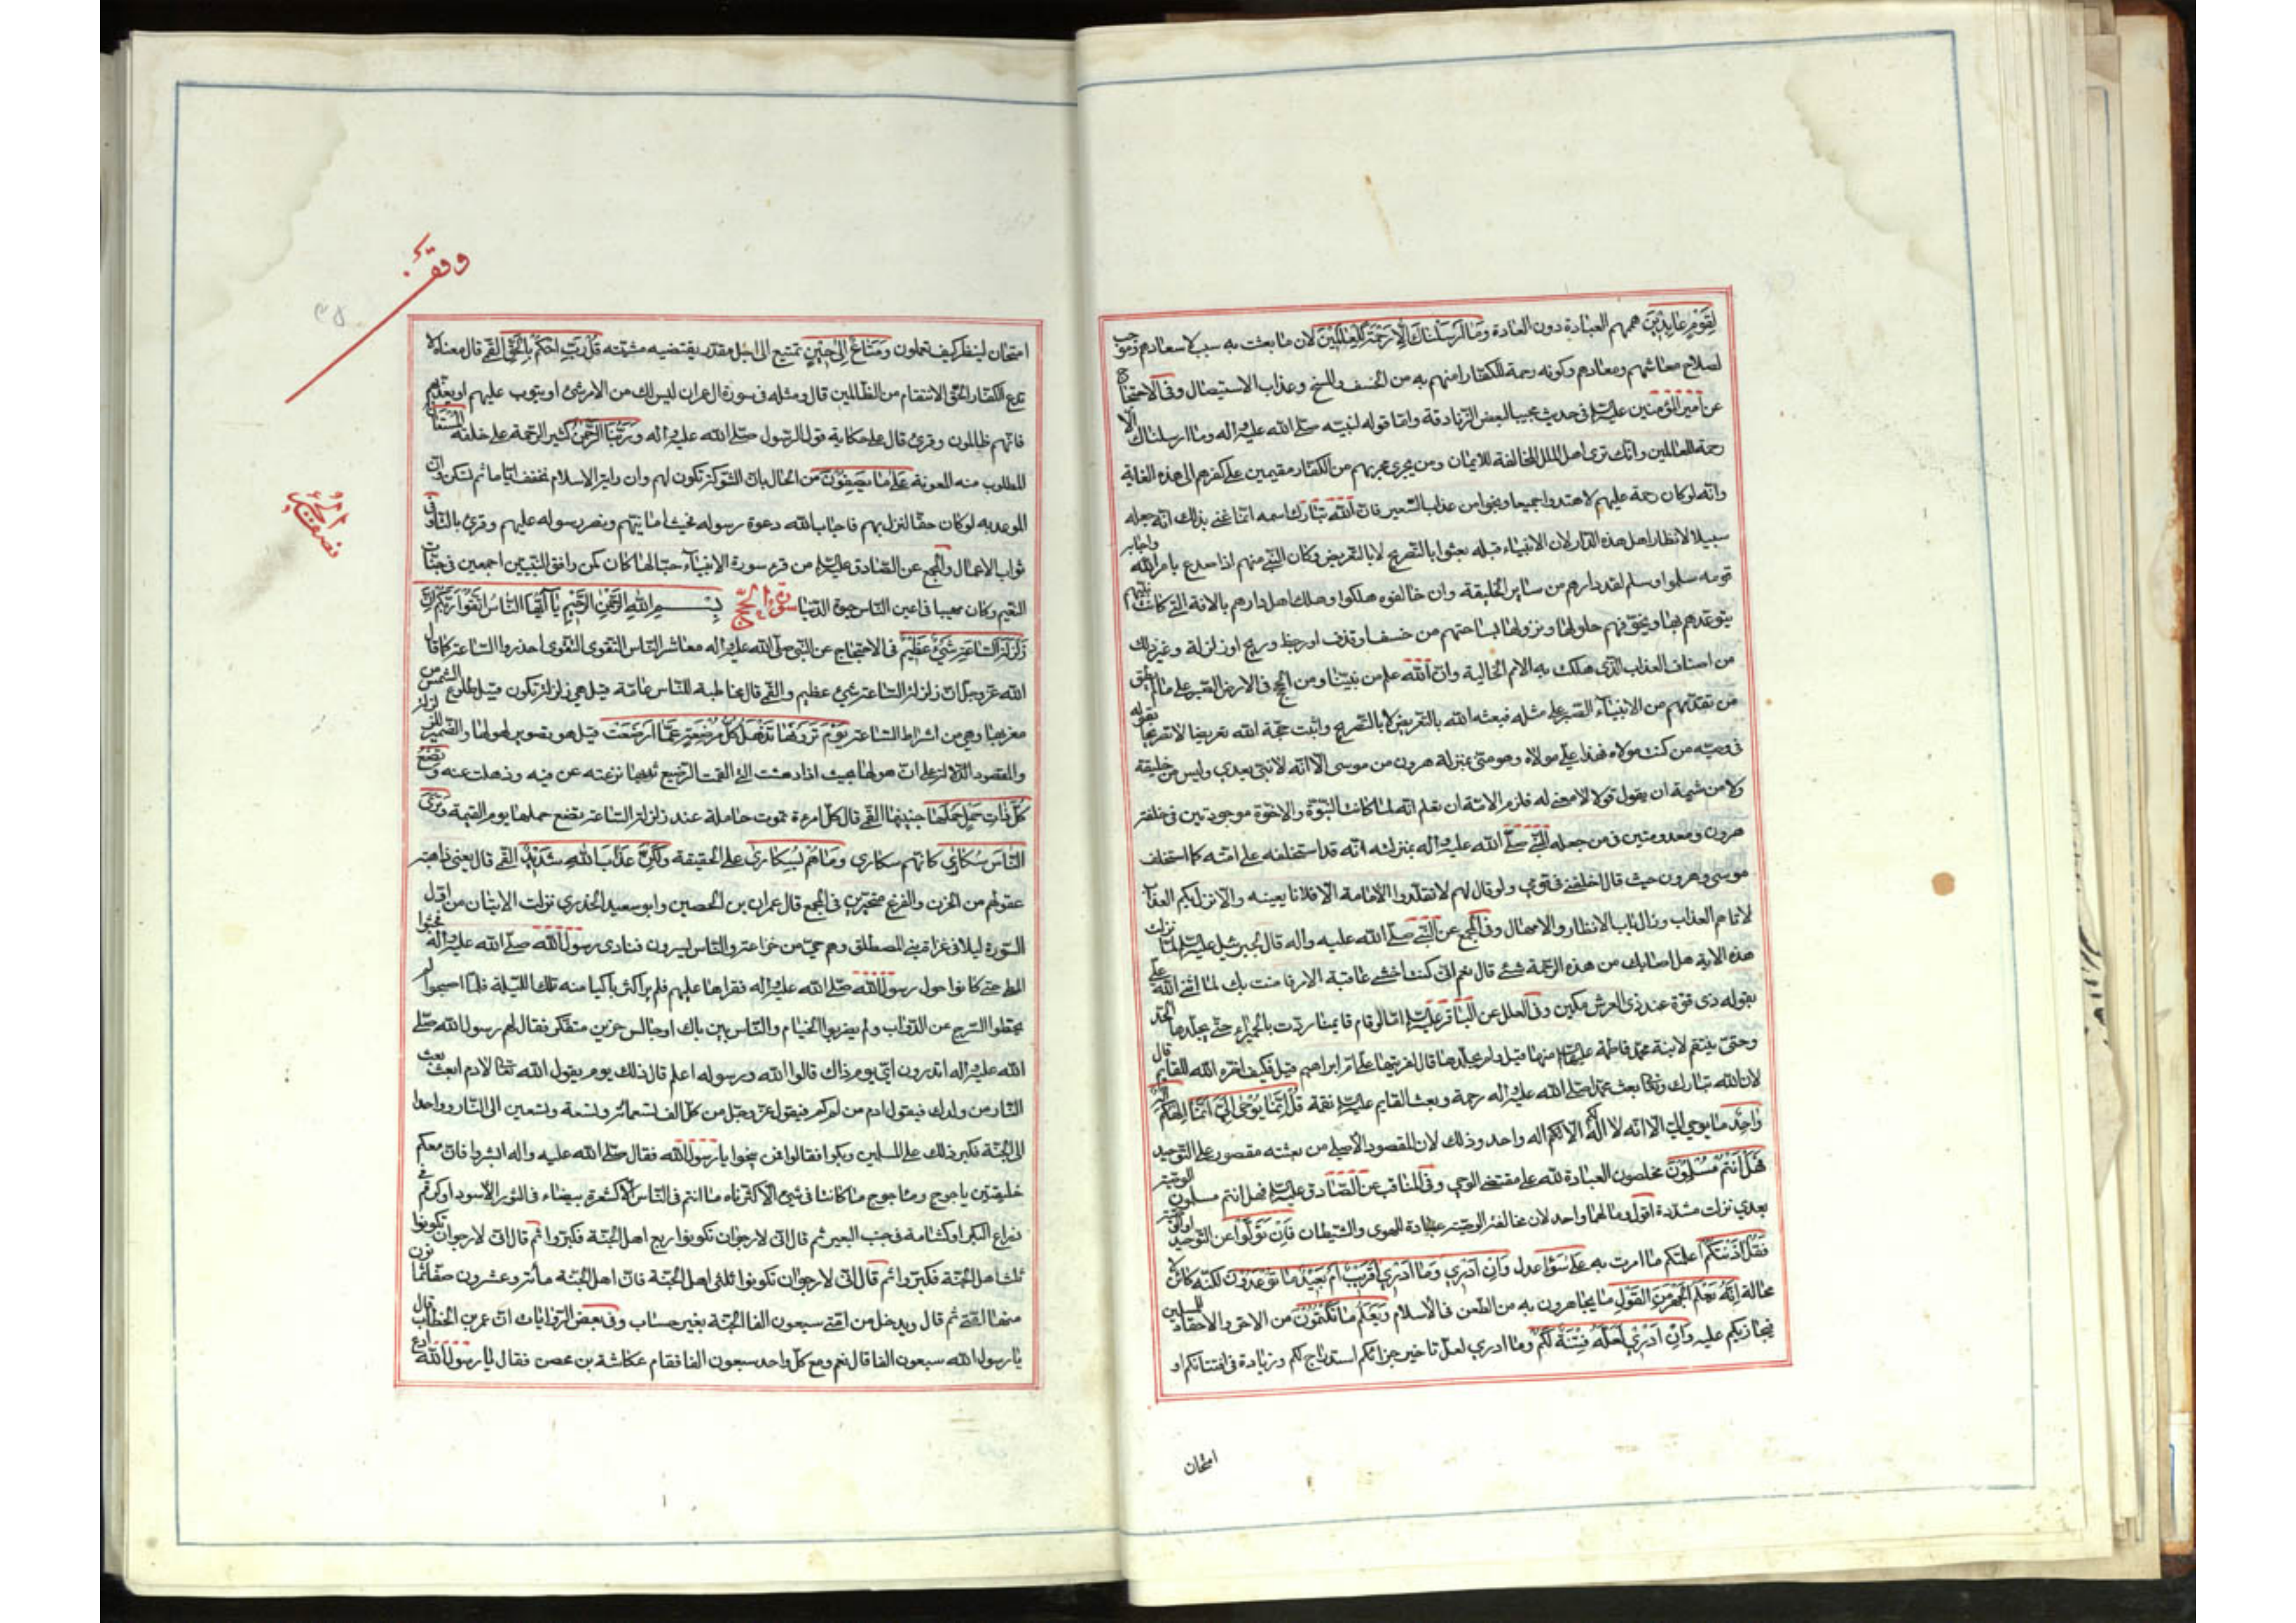 لِقَوْمٍ عابِدِينَ همهم العبادة دون العادة وَمَا أَرْسَلْنَاكَ إِلَّا رَحْمَةً لِلْعَالَمِينَ لان ما بعثت به سبب لاسعادهم وموجب
لصلاح معاشهم ومعادهم وكونه رحمة للكفار امنهم به من الخسف والمسخ وعذاب الاستيصال وفى الاحتجاج
عن امير المؤمنين عليه السلام فى حديث مجيبا لبعض الزنادقة واما قوله لنبيه صلى الله عليه واله وما ارسلناك الا
رحمة للعالمين وانك ترى اهل الملل المخالفة للايمان ومن يجرى مجريهم من الكفار مقيمين على كفرهم الى هذه الغاية
وانه لو كان رحمة عليهم لاهتدوا جميعا ونجوا من عذاب السعير فان الله تبارك اسمه انما عنى بذلك انه جعله
سبيلا لانظار اهل هذه الدار لان الانبياء قبله بعثوا بالتصريح لا بالتعريض وكان النبى منهم اذا صدع بامر الله واجابه
قومه سلموا وسلم اهل دارهم من ساير الخليقة وان خالفوه هلكوا وهلك اهل دارهم بالافة التى كانت نبيهم
يتوعدهم بها ويخوفهم حلولها ونزولها بساحتهم من خسف او قذف او رجف او ريح او زلزلة وغير ذلك
من اصناف العذاب الذى هلكت به الامم الخالية وان الله علم من نبينا ومن الحجج فى الارض الصبر على ما لم يطق
من تقدمهم من الانبياء الصبر على مثله فبعثه الله بالتعريض لا بالتصريح واثبت حجة الله تعريضا لا تصريحا بقوله
فى وصيه من كنت مولاه فهذا على مولاه وهو منى بمنزلة هرون من موسى الا انه لا نبى بعدى وليس من خليقة
ولا من شيمة ان يقول قولا لا معنى له فلزم الامة ان تعلم انه لما كانت النبوة والاخوة موجودتين فى خلقة
هرون ومعدومتين فى من جعله النبى صلى الله عليه واله بمنزلته انه قد استخلفه على امته كما استخلف
موسى هرون حيث قال اخلفنى فى قومى ولو قال لهم لا تقلدوا الامامة الا فلانا بعينه والا نزل بكم العذاب
لاتاهم العذاب وزال باب الانظار والامهال وفى المجمع عن النبى صلى الله عليه واله قال لجبرئيل عليه السلام لما نزلت
هذه الاية هل اصابك من هذه الرحمة شئ قال نعم انى كنت اخشى عاقبة الامر فامنت بك لما اثنى الله على
بقوله ذى قوة عند ذى العرش مكين وفى العلل عن الباقر عليه السلام اما لو قام قايمنا ردت بالحميراء حتى يجلدها الحد
وحتى ينتقم لابنة محمد فاطمة عليها السلام منها قيل ولم يجلدها قال لفريتها على ام ابراهيم قيل فكيف اخره الله للقايم قال
لان الله تبارك وتعالى بعث محمدا صلى الله عليه واله رحمة وبعث القايم عليه السلام نقمة قُلْ إِنَّمَا يُوحَى إِلَيَّ أَنَّمَا إِلَهُكُمْ إِلَهٌ
وَاحِدٌ ما يوحى الى الا انه لا اله لكم الا اله واحد وذلك لان المقصود الاصلى من بعثته مقصور على التوحيد
فَهَلْ أَنْتُمْ مُسْلِمُونَ مخلصون العبادة لله على مقتضى الوحى وفى المناقب عن الصادق عليه السلام فهل انتم مسلمون الوصية
بعدى نزلت مشددة اقول ومالهما واحد لان مخالفة الوصية عبادة للهوى والشيطان فَإِنْ تَوَلَّوْا عن التوحيد او الوصية
فَقُلْ آذَنْتُكُمْ اعلمتكم ما امرت به عَلَى سَوَاءٍ عدل وَإِنْ أَدْرِي وما ادرى أَقَرِيبٌ أَمْ بَعِيدٌ مَا تُوعَدُونَ لكنه كائن لا
محالة إِنَّهُ يَعْلَمُ الْجَهْرَ مِنَ الْقَوْلِ ما يجاهرون به من الطعن فى الاسلام وَيَعْلَمُ مَا تَكْتُمُونَ من الاحن والاحقاد للمسلمين
فيجازيكم عليه وَإِنْ أَدْرِي لَعَلَّهُ فِتْنَةٌ لَكُمْ وما ادرى لعل تاخير جزائكم استدراج لكم وزيادة فى افتتانكم او
امتحان
وقف
امتحان لينظر كيف تعملون وَمَتَاعٌ إِلَى حِينٍ تمتيع الى اجل مقدر يقتضيه مشيته قُلْ رَبِّ احْكُمْ بِالْحَقِّ القمى قال معناه لا
تدع للكفار والحق الانتقام من الظالمين قال ومثله فى سورة ال عمران ليس لك من الامر شئ او يتوب عليهم او يعذبهم
فانهم ظالمون وقرئ قال على حكاية قول الرسول صلى الله عليه واله وَرَبُّنَا الرَّحْمَنُ كثير الرحمة على خلقه الْمُسْتَعَانُ
المطلوب منه المعونة عَلَى مَا تَصِفُونَ من الحال بان الشوكة تكون لهم وان راية الاسلام تخفق اياما ثم تسكن وان
الموعد به لو كان حقا لنزل بهم فاجاب الله دعوة رسوله فخيب امانيهم ونصر رسوله عليهم وقرئ بالتاء وفى
ثواب الاعمال والمجمع عن الصادق عليه السلام من قرء سورة الانبياء حبا لها كان كمن رافق النبيين اجمعين فى جنات
النعيم وكان مهيبا فى اعين الناس حيوة الدنيا سورة الحج بِسْمِ اللهِ الرَّحْمَنِ الرَّحِيمِ يَا أَيُّهَا النَّاسُ اتَّقُوا رَبَّكُمْ إِنَّ
زَلْزَلَةَ السَّاعَةِ شَيْءٌ عَظِيمٌ فى الاحتجاج عن النبى صلى الله عليه واله معاشر الناس التقوى التقوى احذروا الساعة كما قال
الله عز وجل ان زلزلة الساعة شئ عظيم والقمى قال مخاطبة للناس عامة قيل هى زلزلة تكون قبيل طلوع الشمس من
مغربها وهى من اشراط الساعة يَوْمَ تَرَوْنَهَا تَذْهَلُ كُلُّ مُرْضِعَةٍ عَمَّا أَرْضَعَتْ قيل هو تصوير لهولها والضمير للزلزلة
والمقصود الدلالة على ان هولها بحيث اذا دهشت التى القمت الرضيع ثديها نزعته عن فيه وذهلت عنه وَتَضَعُ
كُلُّ ذَاتِ حَمْلٍ حَمْلَهَا جنينها القمى قال كل امرءة تموت حاملة عند زلزلة الساعة تضع حملها يوم القيمة وَتَرَى
النَّاسَ سُكَارَى كانهم سكارى وَمَا هُمْ بِسُكَارَى على الحقيقة وَلَكِنَّ عَذَابَ اللهِ شَدِيدٌ القمى قال يعنى ذاهبة
عقولهم من الحزن والفزع متحيرين فى المجمع قال عمران بن الحصين وابو سعيد الخدرى نزلت الايتان من اول
السورة ليلا فى غزاة بنى المصطلق وهم حى من خزاعة والناس يسيرون فنادى رسول الله صلى الله عليه واله فحثوا
المطى حتى كانوا حول رسول الله صلى الله عليه واله فقراها عليهم فلم ير اكثر باكيا منه تلك الليلة فلما اصبحوا لم
يحطوا السرج عن الدواب ولم يضربوا الخيام والناس بين باك او جالس حزين متفكر فقال لهم رسول الله صلى
الله عليه واله اتدرون اى يوم ذاك قالوا الله ورسوله اعلم قال ذلك يوم يقول الله تعالى لادم ابعث بعث
النار من ولدك فيقول ادم من كم كم فيقول عز وجل من كل الف تسعمائة وتسعة وتسعين الى النار وواحدا
الى الجنة فكبر ذلك على المسلمين وبكوا فقالوا فمن ينجوا يا رسول الله فقال صلى الله عليه واله ابشروا فان معكم
خليقتين ياجوج وماجوج ما كانتا فى شئ الا كثرتاه ما انتم فى الناس الا كشعرة بيضاء فى الثور الاسود او كرقم فى
ذراع البكر او كشامة فى جنب البعير ثم قال انى لارجو ان تكونوا ربع اهل الجنة فكبروا ثم قال انى لارجو ان تكونوا
ثلث اهل الجنة فكبروا ثم قال انى لارجو ان تكونوا ثلثى اهل الجنة فان اهل الجنة مأة وعشرون صفا ثمانون
منها امتى ثم قال ويدخل من امتى سبعون الفا الجنة بغير حساب وفى بعض الروايات ان عمر بن الخطاب قال
يا رسول الله سبعون الفا قال نعم ومع كل واحد سبعون الفا فقام عكاشة بن محصن فقال يا رسول الله ادع